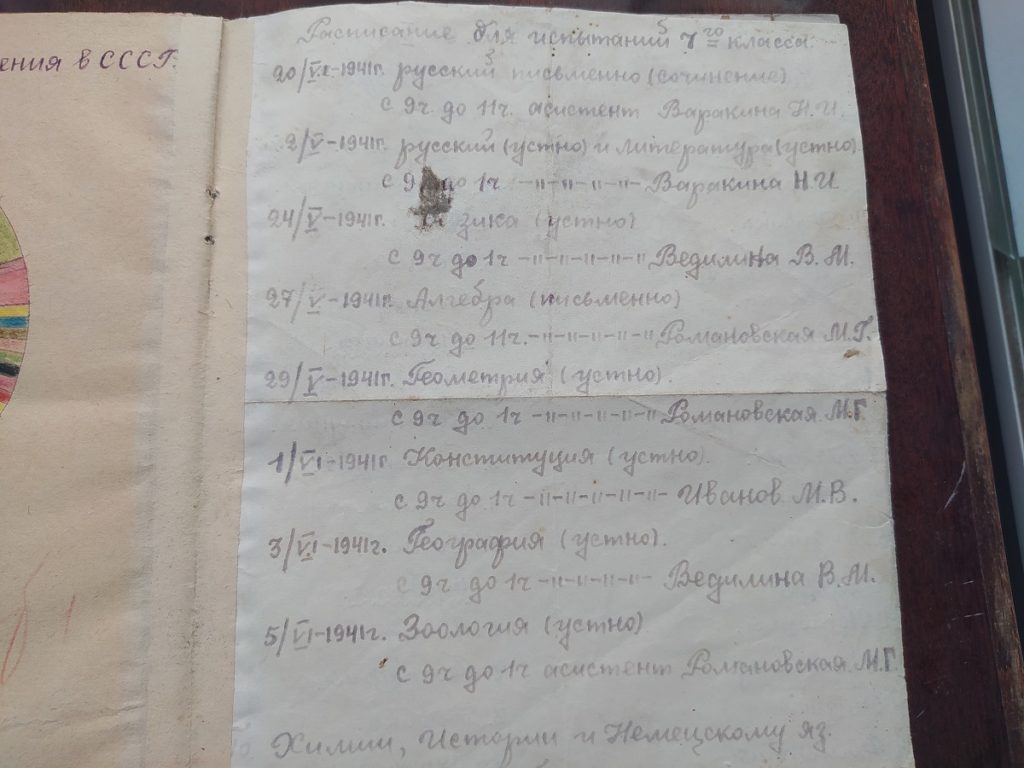 ения в СССР.
Расписание для испытаний 7го класса.
20/V-1941г. русский письменно (сочинение)
с 9ч до 11ч. асистент Варакина Н.И.
2/V-1941г. русский (устно) и литература (устно)
с 9ч до 1ч -"-"-"-"- Варакина Н.И
24/V-1941г. зика (устно)
с 9ч до 1ч -"-"-"-"-" Ведилина В.М.
27/V-1941г. Алгебра (письменно)
с 9ч до 11ч. -"-"-"-"-" Романовская М.Г.
29/V-1941г. Геометрия (устно).
с 9ч до 1ч -"-"-"-"-" Романовская М.Г
1/VI-1941г Конституция (устно).
с 9ч до 1ч -"-"-"-"-"- Иванов М.В.
3/VI-1941г. География (устно).
с 9ч до 1ч -"-"-"-"- Ведилина В.М.
5/VI-1941г. Зоология (устно)
с 9ч до 1ч асистент Романовская М.Г
Химии, Истории и Немецскому яз.